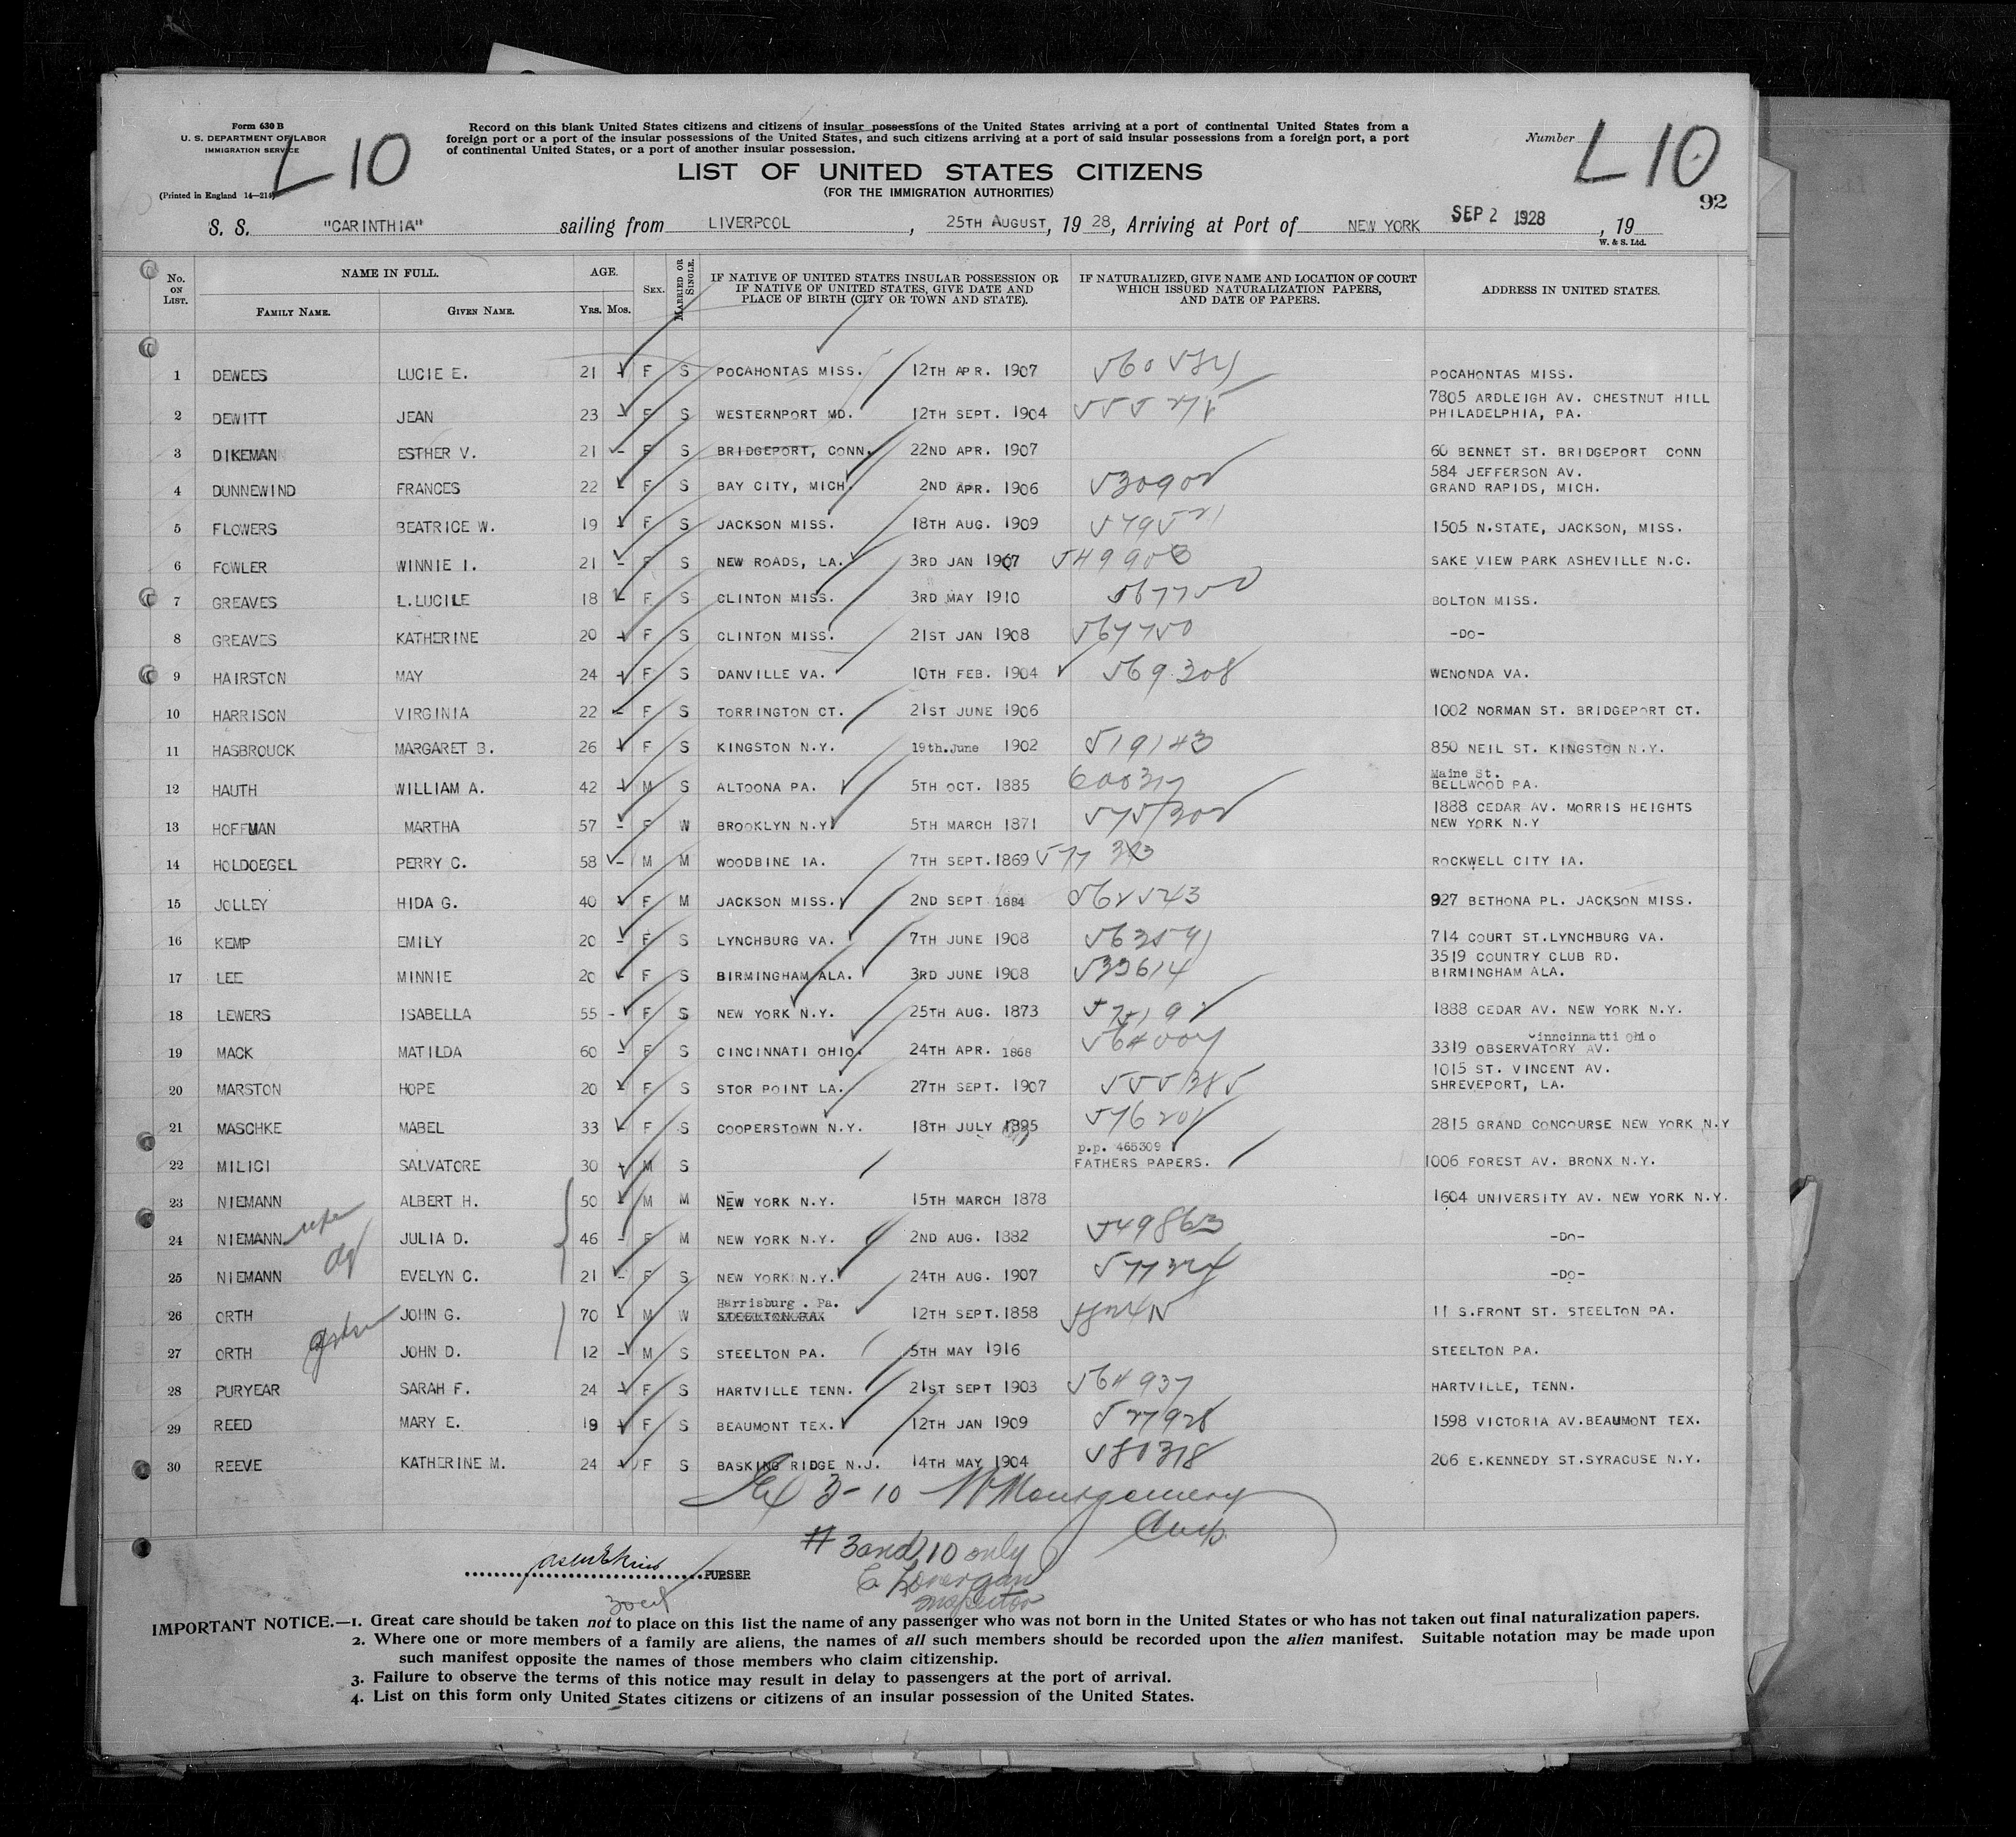 Form 630 B
U. S. DEPARTMENT OF LABOR
IMMIGRATION SERVICE
(Printed in England 14—214)
L 10
Record on this blank United States citizens and citizens of insular possessions of the United States arriving at a port of continental United States from a
foreign port or a port of the insular possessions of the United States, and such citizens arriving at a port of said insular possessions from a foreign port, a port
of continental United States, or a port of another insular possession.
Number
L 10
92
LIST OF UNITED STATES CITIZENS
(FOR THE IMMIGRATION AUTHORITIES)
S. S. "CARINTHIA" sailing from LIVERPOOL, 25TH AUGUST, 19 28, Arriving at Port of NEW YORK SEP 2 1928, 19
W. & S. Ltd.
No. ON LIST. NAME IN FULL. AGE. SEX. MARRIED OR SINGLE. IF NATIVE OF UNITED STATES INSULAR POSSESSION OR IF NATIVE OF UNITED STATES, GIVE DATE AND PLACE OF BIRTH (CITY OR TOWN AND STATE). IF NATURALIZED, GIVE NAME AND LOCATION OF COURT WHICH ISSUED NATURALIZATION PAPERS, AND DATE OF PAPERS. ADDRESS IN UNITED STATES.
FAMILY NAME. GIVEN NAME. YRS. MOS.
1 DEWEES LUCIE E. 21 - F S POCAHONTAS MISS. 12TH APR. 1907 POCAHONTAS MISS.
2 DEWITT JEAN 23 - F S WESTERNPORT MD. 12TH SEPT. 1904 7805 ARDLEIGH AV. CHESTNUT HILL
PHILADELPHIA, PA.
3 DIKEMAN ESTHER V. 21 - F S BRIDGEPORT, CONN. 22ND APR. 1907 60 BENNET ST. BRIDGEPORT CONN
4 DUNNEWIND FRANCES 22 - F S BAY CITY, MICH. 2ND APR. 1906 530902 584 JEFFERSON AV.
GRAND RAPIDS, MICH.
5 FLOWERS BEATRICE W. 19 - F S JACKSON MISS. 18TH AUG. 1909 579521 1505 N.STATE, JACKSON, MISS.
6 FOWLER WINNIE I. 21 - F S NEW ROADS, LA. 3RD JAN 1907 549903 SAKE VIEW PARK ASHEVILLE N.C.
7 GREAVES L.LUCILE 18 - F S CLINTON MISS. 3RD MAY 1910 567750 BOLTON MISS.
8 GREAVES KATHERINE 20 - F S CLINTON MISS. 21ST JAN 1908 567750 -DO-
9 HAIRSTON MAY 24 - F S DANVILLE VA. 10TH FEB. 1904 569308 WENONDA VA.
10 HARRISON VIRGINIA 22 - F S TORRINGTON CT. 21ST JUNE 1906 1002 NORMAN ST. BRIDGEPORT CT.
11 HASBROUCK MARGARET B. 26 - F S KINGSTON N.Y. 19th.June 1902 519143 850 NEIL ST. KINGSTON N.Y.
12 HAUTH WILLIAM A. 42 - M S ALTOONA PA. 5TH OCT. 1885 600317 Maine St.
BELLWOOD PA.
13 HOFFMAN MARTHA 57 - F W BROOKLYN N.Y. 5TH MARCH 1871 575302 1888 CEDAR AV. MORRIS HEIGHTS
NEW YORK N.Y
14 HOLDOEGEL PERRY C. 58 - M M WOODBINE IA. 7TH SEPT. 1869 ROCKWELL CITY IA.
15 JOLLEY HIDA G. 40 - F M JACKSON MISS. 2ND SEPT 1884 562543 927 BETHONA PL. JACKSON MISS.
16 KEMP EMILY 20 - F S LYNCHBURG VA. 7TH JUNE 1908 714 COURT ST.LYNCHBURG VA.
17 LEE MINNIE 20 - F S BIRMINGHAM ALA. 3RD JUNE 1908 533614 3519 COUNTRY CLUB RD.
BIRMINGHAM ALA.
18 LEWERS ISABELLA 55 - F S NEW YORK N.Y. 25TH AUG. 1873 1888 CEDAR AV. NEW YORK N.Y.
19 MACK MATILDA 60 - F S CINCINNATI OHIO. 24TH APR. 1868 564007 Cinncinnatti Ohio
3319 OBSERVATORY AV.
20 MARSTON HOPE 20 - F S STOR POINT LA. 27TH SEPT. 1907 555385 1015 ST. VINCENT AV.
SHREVEPORT, LA.
21 MASCHKE MABEL 33 - F S COOPERSTOWN N.Y. 18TH JULY 1895 576201 2815 GRAND CONCOURSE NEW YORK N.Y
22 MILICI SALVATORE 30 - M S p.p. 465309
FATHERS PAPERS. 1006 FOREST AV. BRONX N.Y.
23 NIEMANN ALBERT H. 50 - M M NEW YORK N.Y. 15TH MARCH 1878 1604 UNIVERSITY AV. NEW YORK N.Y.
24 NIEMANN JULIA D. 46 - F M NEW YORK N.Y. 2ND AUG. 1882 549863 -DO-
25 NIEMANN EVELYN C. 21 - F S NEW YORK N.Y. 24TH AUG. 1907 577324 -DO-
26 ORTH JOHN G. 70 - M W Harrisburg . Pa.
STEELTON PA. 12TH SEPT. 1858 11 S.FRONT ST. STEELTON PA.
27 ORTH JOHN D. 12 - M S STEELTON PA. 5TH MAY 1916 STEELTON PA.
28 PURYEAR SARAH F. 24 - F S HARTVILLE TENN. 21ST SEPT 1903 564937 HARTVILLE, TENN.
29 REED MARY E. 19 - F S BEAUMONT TEX. 12TH JAN 1909 527928 1598 VICTORIA AV.BEAUMONT TEX.
30 REEVE KATHERINE M. 24 - F S BASKING RIDGE N.J. 14TH MAY 1904 580318 206 E.KENNEDY ST.SYRACUSE N.Y.
3-10 W Montgomery
# 3 and 10 only
E Lonergan
Inspector
PURSER
IMPORTANT NOTICE.—1. Great care should be taken not to place on this list the name of any passenger who was not born in the United States or who has not taken out final naturalization papers.
2. Where one or more members of a family are aliens, the names of all such members should be recorded upon the alien manifest. Suitable notation may be made upon
such manifest opposite the names of those members who claim citizenship.
3. Failure to observe the terms of this notice may result in delay to passengers at the port of arrival.
4. List on this form only United States citizens or citizens of an insular possession of the United States.